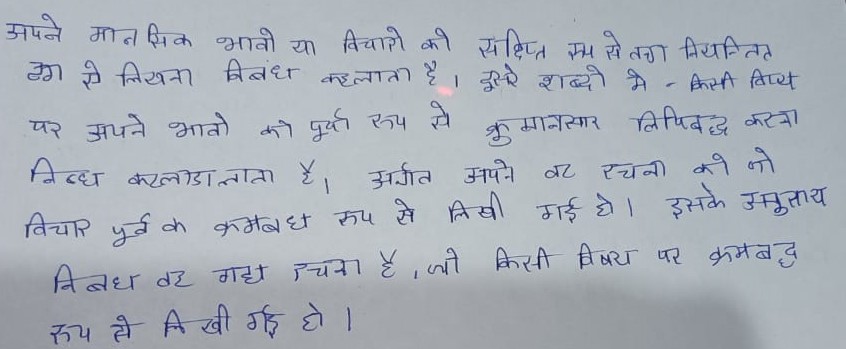 अपने मानसिक भावो या विचारो को संक्षिप्त रूप से तथा नियन्त्रित
ढंग से लिखना निबंध कहलाता है। दुसरे शब्दो मे - किसी विषय
पर अपने भावो को पूर्ण रूप से क्रमानुसार लिपिबद्ध करना
निबंध कहलाता है। अर्थात अपने वह रचना को जो
विचार पूर्व क क्रमबध रूप से लिखी गई हो। इसके
निबंध वह गद्य रचना है, जो किसी विषय पर क्रमबद्ध
रूप से लिखी गई हो।